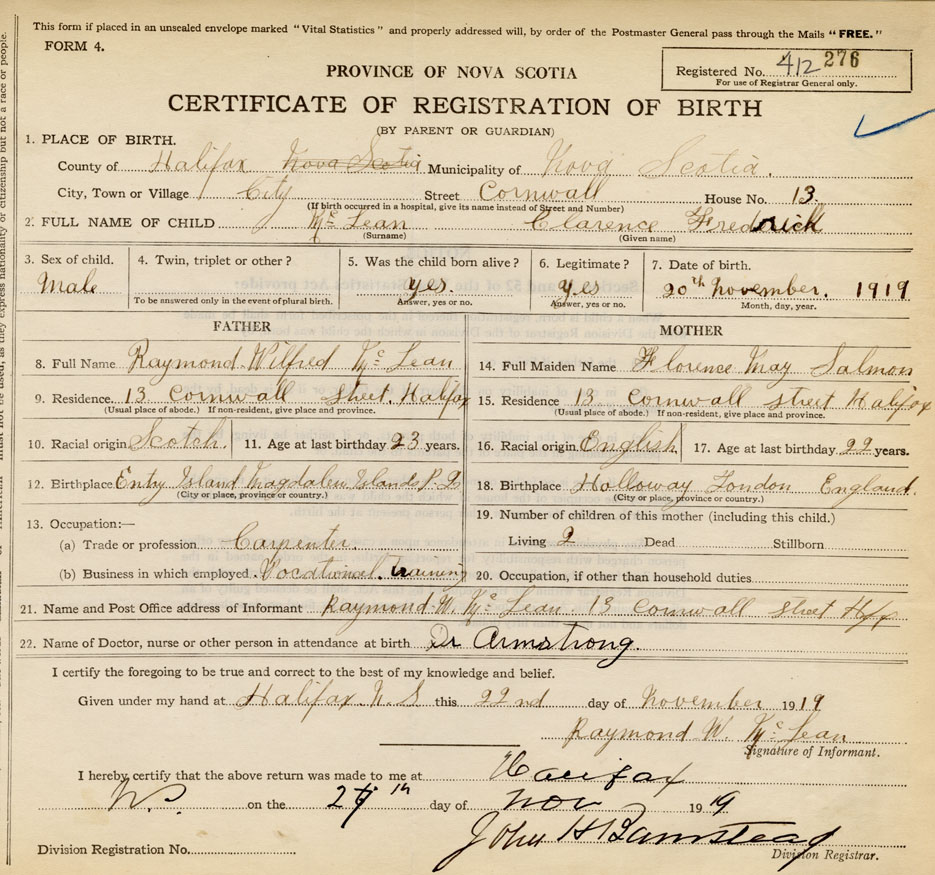 This form if placed in an unsealed envelope marked "Vital Statistics" and properly addressed will, by order of the Postmaster General pass through the Mails "FREE."
FORM 4.
Registered No. 412 276
For use of Registrar General only.
PROVINCE OF NOVA SCOTIA
CERTIFICATE OF REGISTRATION OF BIRTH
(BY PARENT OR GUARDIAN)
1. PLACE OF BIRTH.
County of Halifax Nova Scotia Municipality of Nova Scotia.
City, Town or Village City Street Cornwall House No. 13.
(If birth occurred in a hospital, give its name instead of Street and Number)
2. FULL NAME OF CHILD Mc Lean Clarence Fredrick
(Surname) (Given name)
3. Sex of child. 4. Twin, triplet or other? 5. Was the child born alive? 6. Legitimate? 7. Date of birth.
Male yes. yes 20th November. 1919
To be answered only in the event of plural birth. Answer, yes or no. Answer, yes or no. Month, day, year.
FATHER MOTHER
8. Full Name Raymond Wilfred Mc Lean 14. Full Maiden Name Florence May Salmon
9. Residence. 13 Cornwall street. Halifax 15. Residence 13 Cornwall street Halifax
(Usual place of abode.) If non-resident, give place and province. (Usual place of abode.) If non-resident, give place and province.
10. Racial origin Scotch. 11. Age at last birthday 23 years. 16. Racial origin English. 17. Age at last birthday 22 years.
12. Birthplace Entry Island Magdalen Islands P.Q 18. Birthplace Holloway London England.
(City or place, province or country.) (City or place, province or country.)
13. Occupation:— 19. Number of children of this mother (including this child.)
(a) Trade or profession Carpenter. Living 2 Dead Stillborn
(b) Business in which employed Vocational training 20. Occupation, if other than household duties
21. Name and Post Office address of Informant Raymond W. Mc Lean. 13 Cornwall street Hfx
22. Name of Doctor, nurse or other person in attendance at birth Dr Armstrong.
I certify the foregoing to be true and correct to the best of my knowledge and belief.
Given under my hand at Halifax. N.S this 22nd day of November 1919
Raymond W. Mc Lean
Signature of Informant.
I hereby certify that the above return was made to me at Halifax
N.S on the day of Nov 1919
John H Barnstead
Division Registration No. Division Registrar.